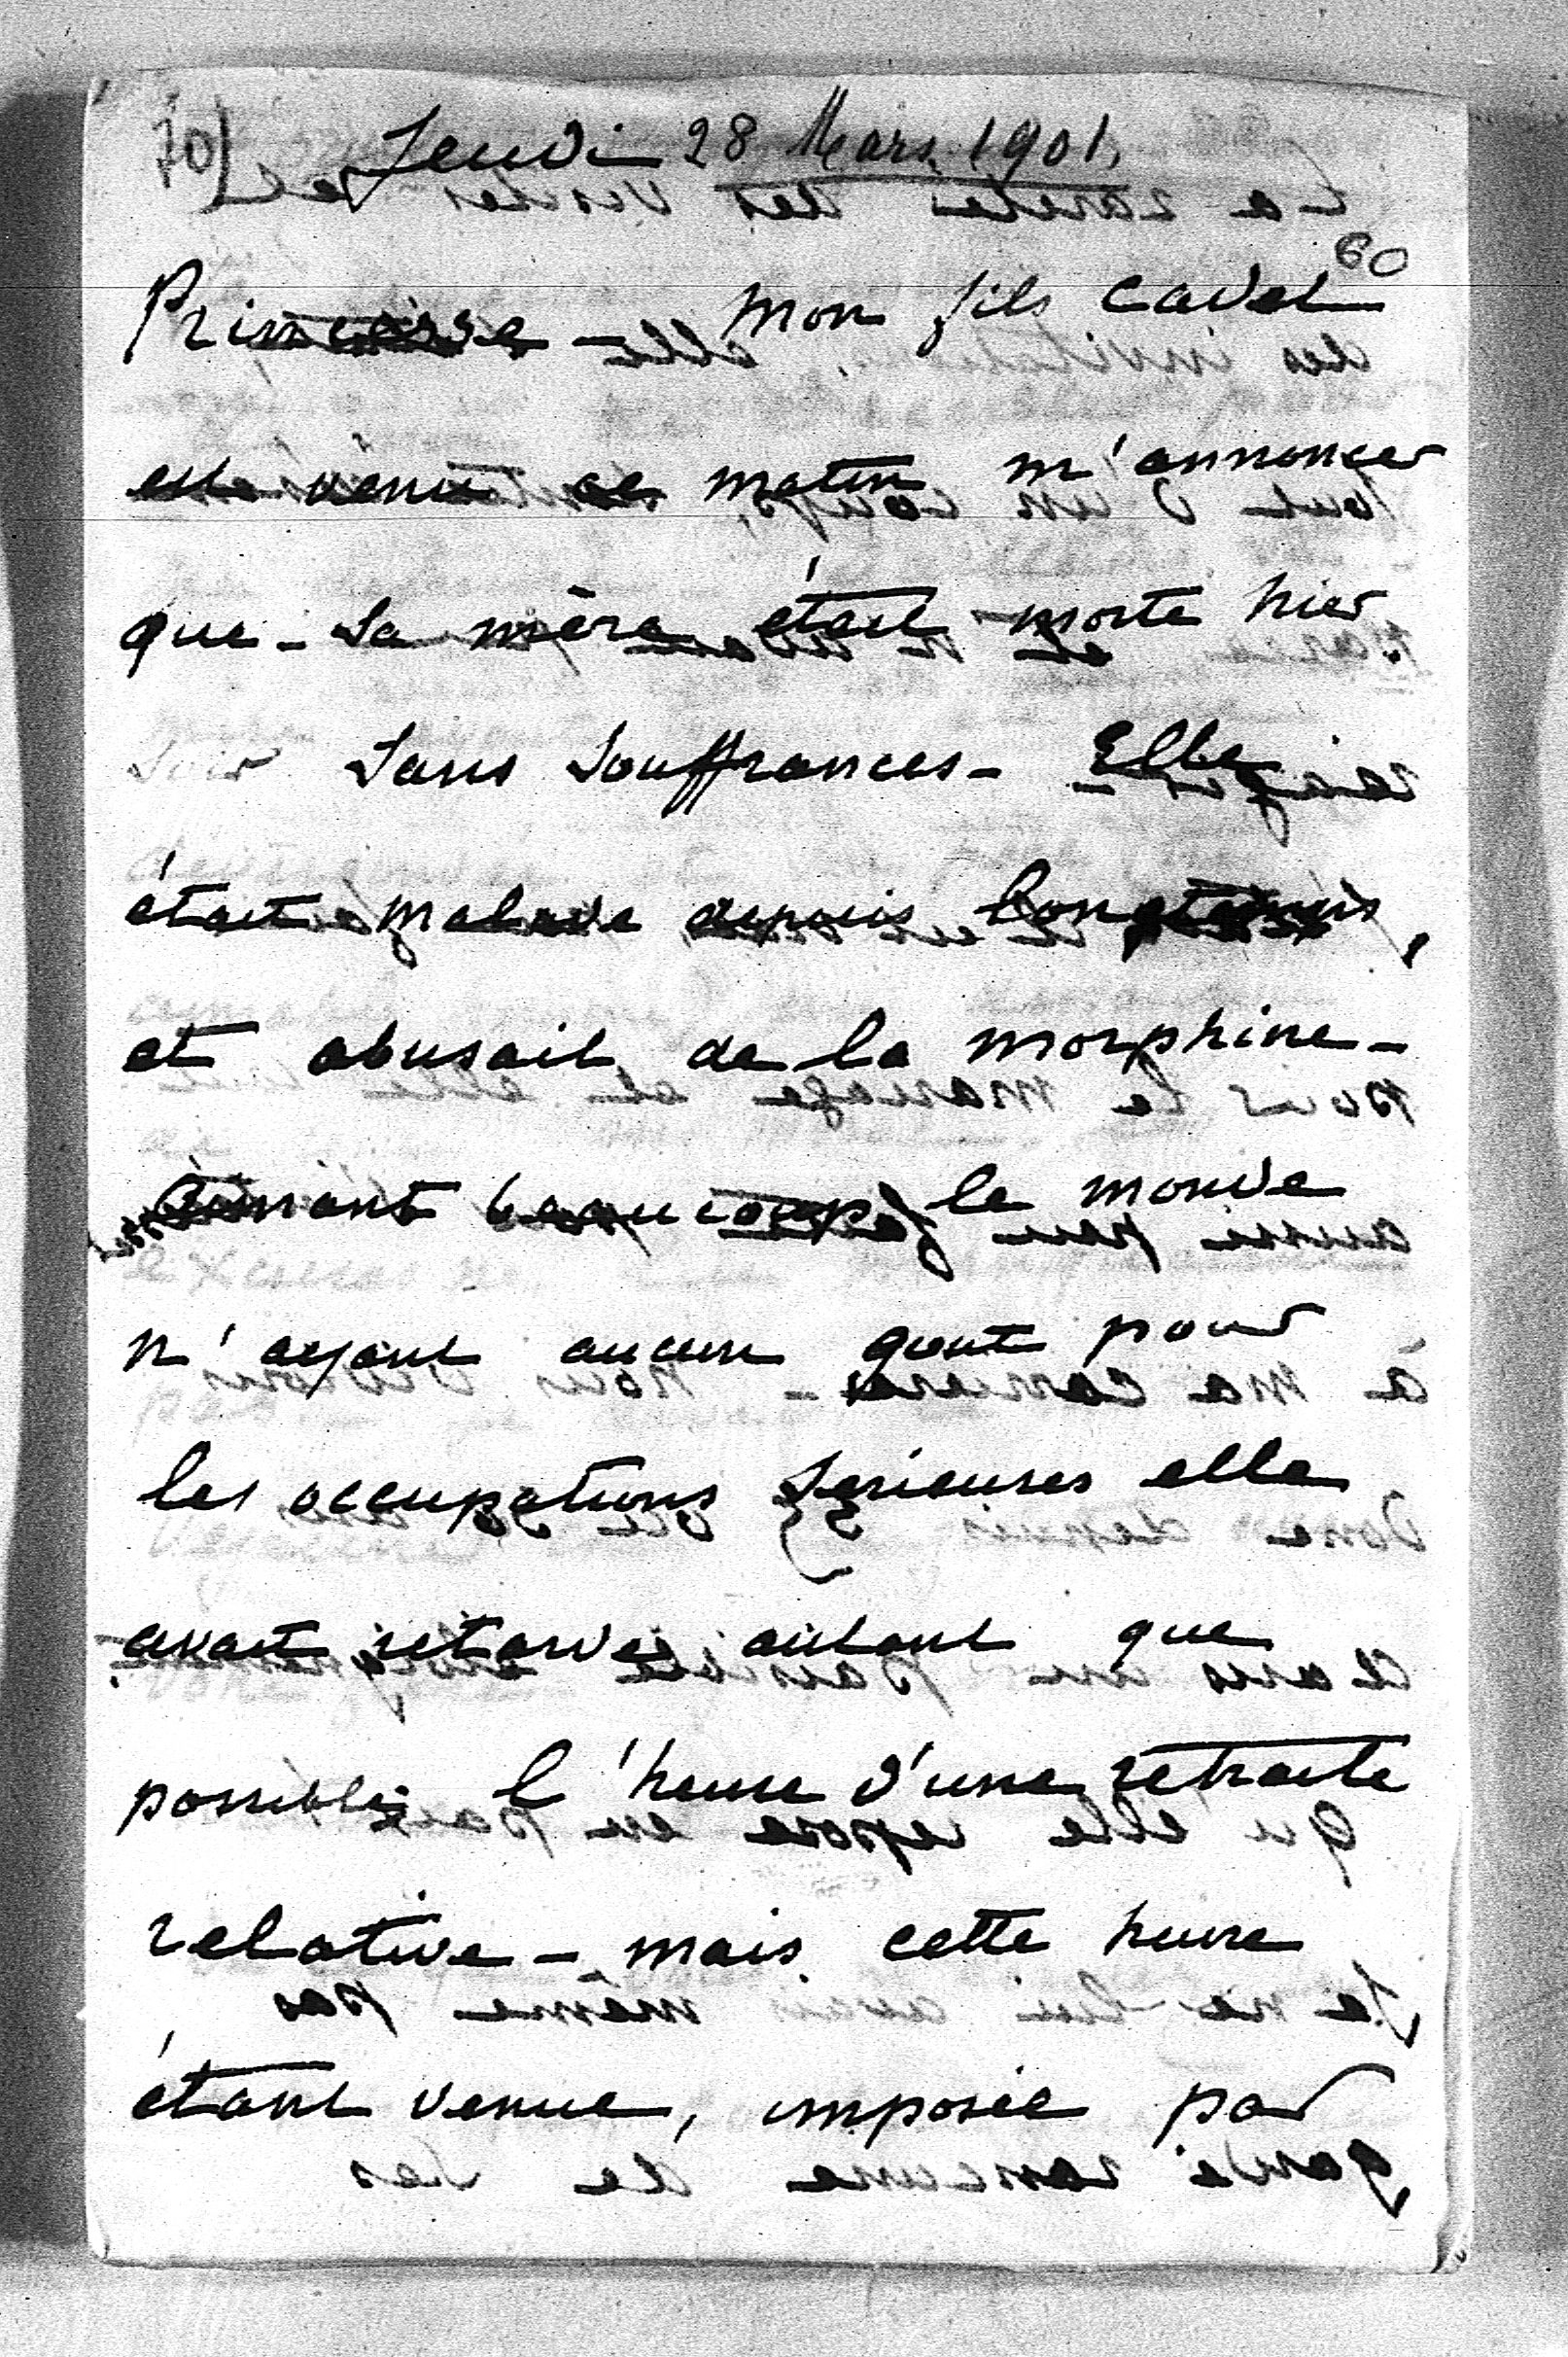 70) Jeudi 28 Mars 1901.
60
Princesse - Mon fils cadet
est venu ce matin m'annoncer
que - sa mère était morte hier
soir sans souffrances - Elle
était malade depuis longtemps,
et abusait de la morphine -
Aimant beaucoup le monde
n'ayant aucun gout pour
les occupations serieuses elle
avait retardé autant que
possible l'heure d'une retraite
relative - mais cette heure
étant venue, imposée par